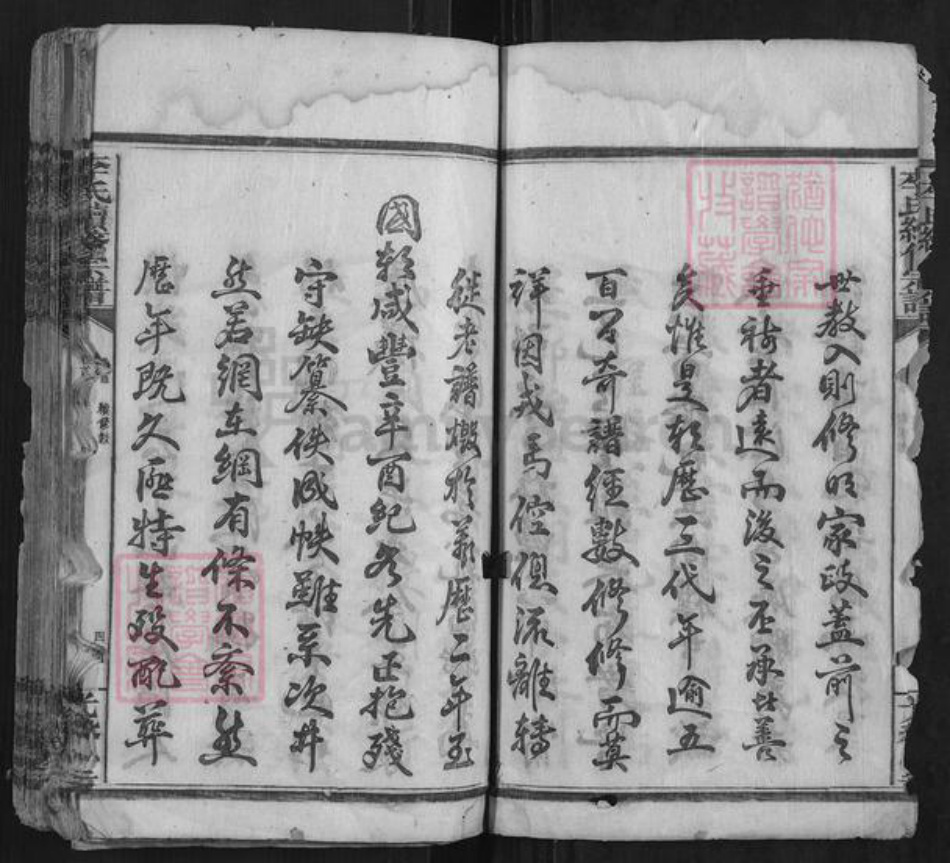 世教入則修明家政蓋前之
垂裕者遠而後之丕承者善
矣惟是歷三代年逾五
百公奇譜經數修修而莫
詳因戎馬倥傯流離轉
徙老譜燬於萬曆二年至
國朝咸豐辛酉紀各先正抱殘
守缺纂佚成帙雖系次井
然若網在綱有條不紊然
歷年既久匪特生歿配葬
李氏續修宗譜
李氏續修宗譜